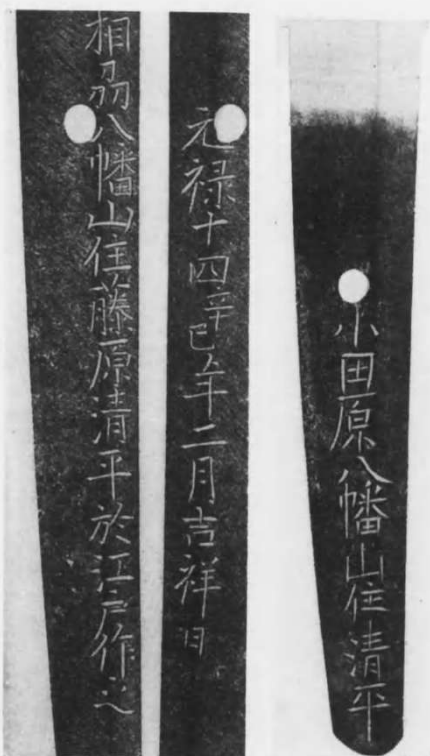 小田原八幡山住清平
元禄十四辛巳年二月吉祥日
相刕八幡山住藤原清平於江戸作之